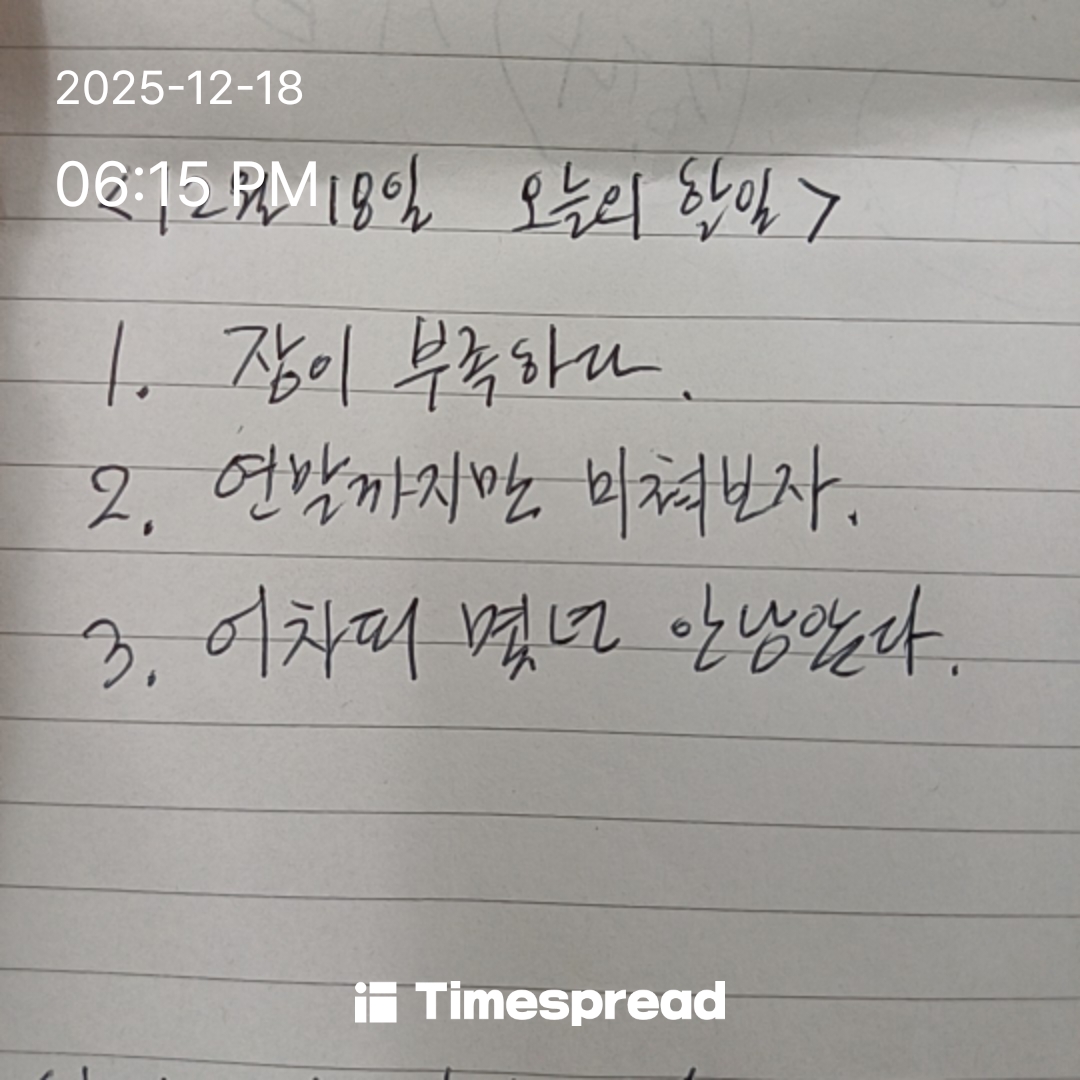 2025-12-18
06:15 PM
<12월 18일 오늘의 할일>
1. 잠이 부족하다.
2. 연말까지만 미쳐보자.
3. 어차피 몇년 안남았다.
Timespread